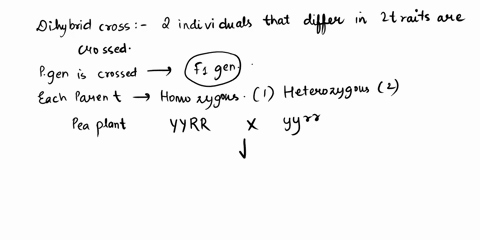 Dihybrid cross:- 2 individuals that differ in 2 traits are
crossed.
P.gen is crossed → F1 gen.
Each Parent → Homozygous. (1) Heterozygous (2)
Pea plant YYRR X yyrr
↓